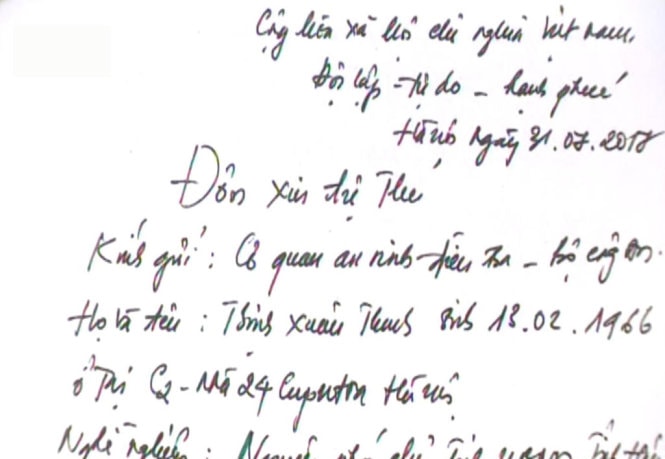 Cộng hòa xã hội chủ nghĩa Việt Nam
Độc lập - tự do - hạnh phúc
Hà Nội ngày 31.07.2017
Đơn xin tự Thú
Kính gửi: Cơ quan an ninh điều tra - Bộ công an.
Họ và tên: Trịnh Xuân Thanh sinh 13.02.1966
ở Tại C2 - Nhà 24 Hà nội
Nghề nghiệp: Nguyên